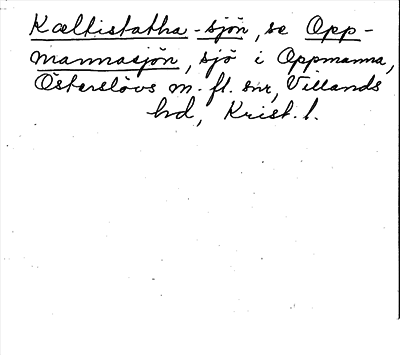 Kæltistatha-sjön, se Opp-
mannasjön, sjö i Oppmanna,
Österslövs m. fl. snr, Villands
hd, Krist. l.